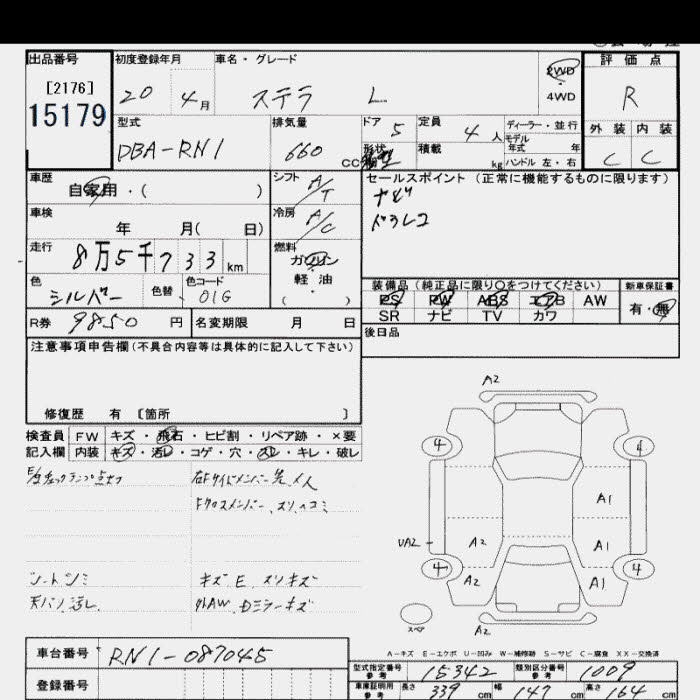 出品番号 初度登録年月 車名・グレード 2WD 評価点
[2176] 20 4月 ステラ L 4WD R
15179 型式 排気量 ドア 5 定員 4人 ディーラー・並行 外装 内装
DBA-RN1 660 CC 形状 積載 kg モデル年式 年 ハンドル 左・右 C C
車歴 自家用・( ) シフト A/T セールスポイント (正常に機能するものに限ります)
車検 年 月( 日) 冷房 A/C ナビ
ドラレコ
走行 8万5千733km 燃料 ガソリン 軽油 ( )
色 シルバー 色替 色コード 01G 装備品(純正品に限り○をつけてください) 新車保証書
PS PW ABS エアB AW 有・無
R券 9850円 名変期限 月 日 SR ナビ TV カワ
注意事項申告欄(不具合内容等は具体的に記入して下さい) 後日品
修復歴 有 〔箇所 〕
検査員 FW キズ・飛石・ヒビ割・リペア跡・×要
記入欄 内装 キズ・汚レ・コゲ・穴・スレ・キレ・破レ
右Fサイドメンバー先メ人
Fクロスメンバー、スリ、ヘコミ
シートシミ キズE スリキズ
天バリ汚レ 外AW、Dミラーキズ
A2
4 4
A1
UA2 A2 A1
4 4
A2 A1
スペア A2
A-キズ E-エクボ U-凹み W-補修跡 S-サビ C-腐食 XX-交換済
車台番号 RN1-087045
型式指定番号 参考 15342 類別区分番号 参考 1009
登録番号 車庫証明用 参考 長さ 339cm 幅 147cm 高さ 164cm